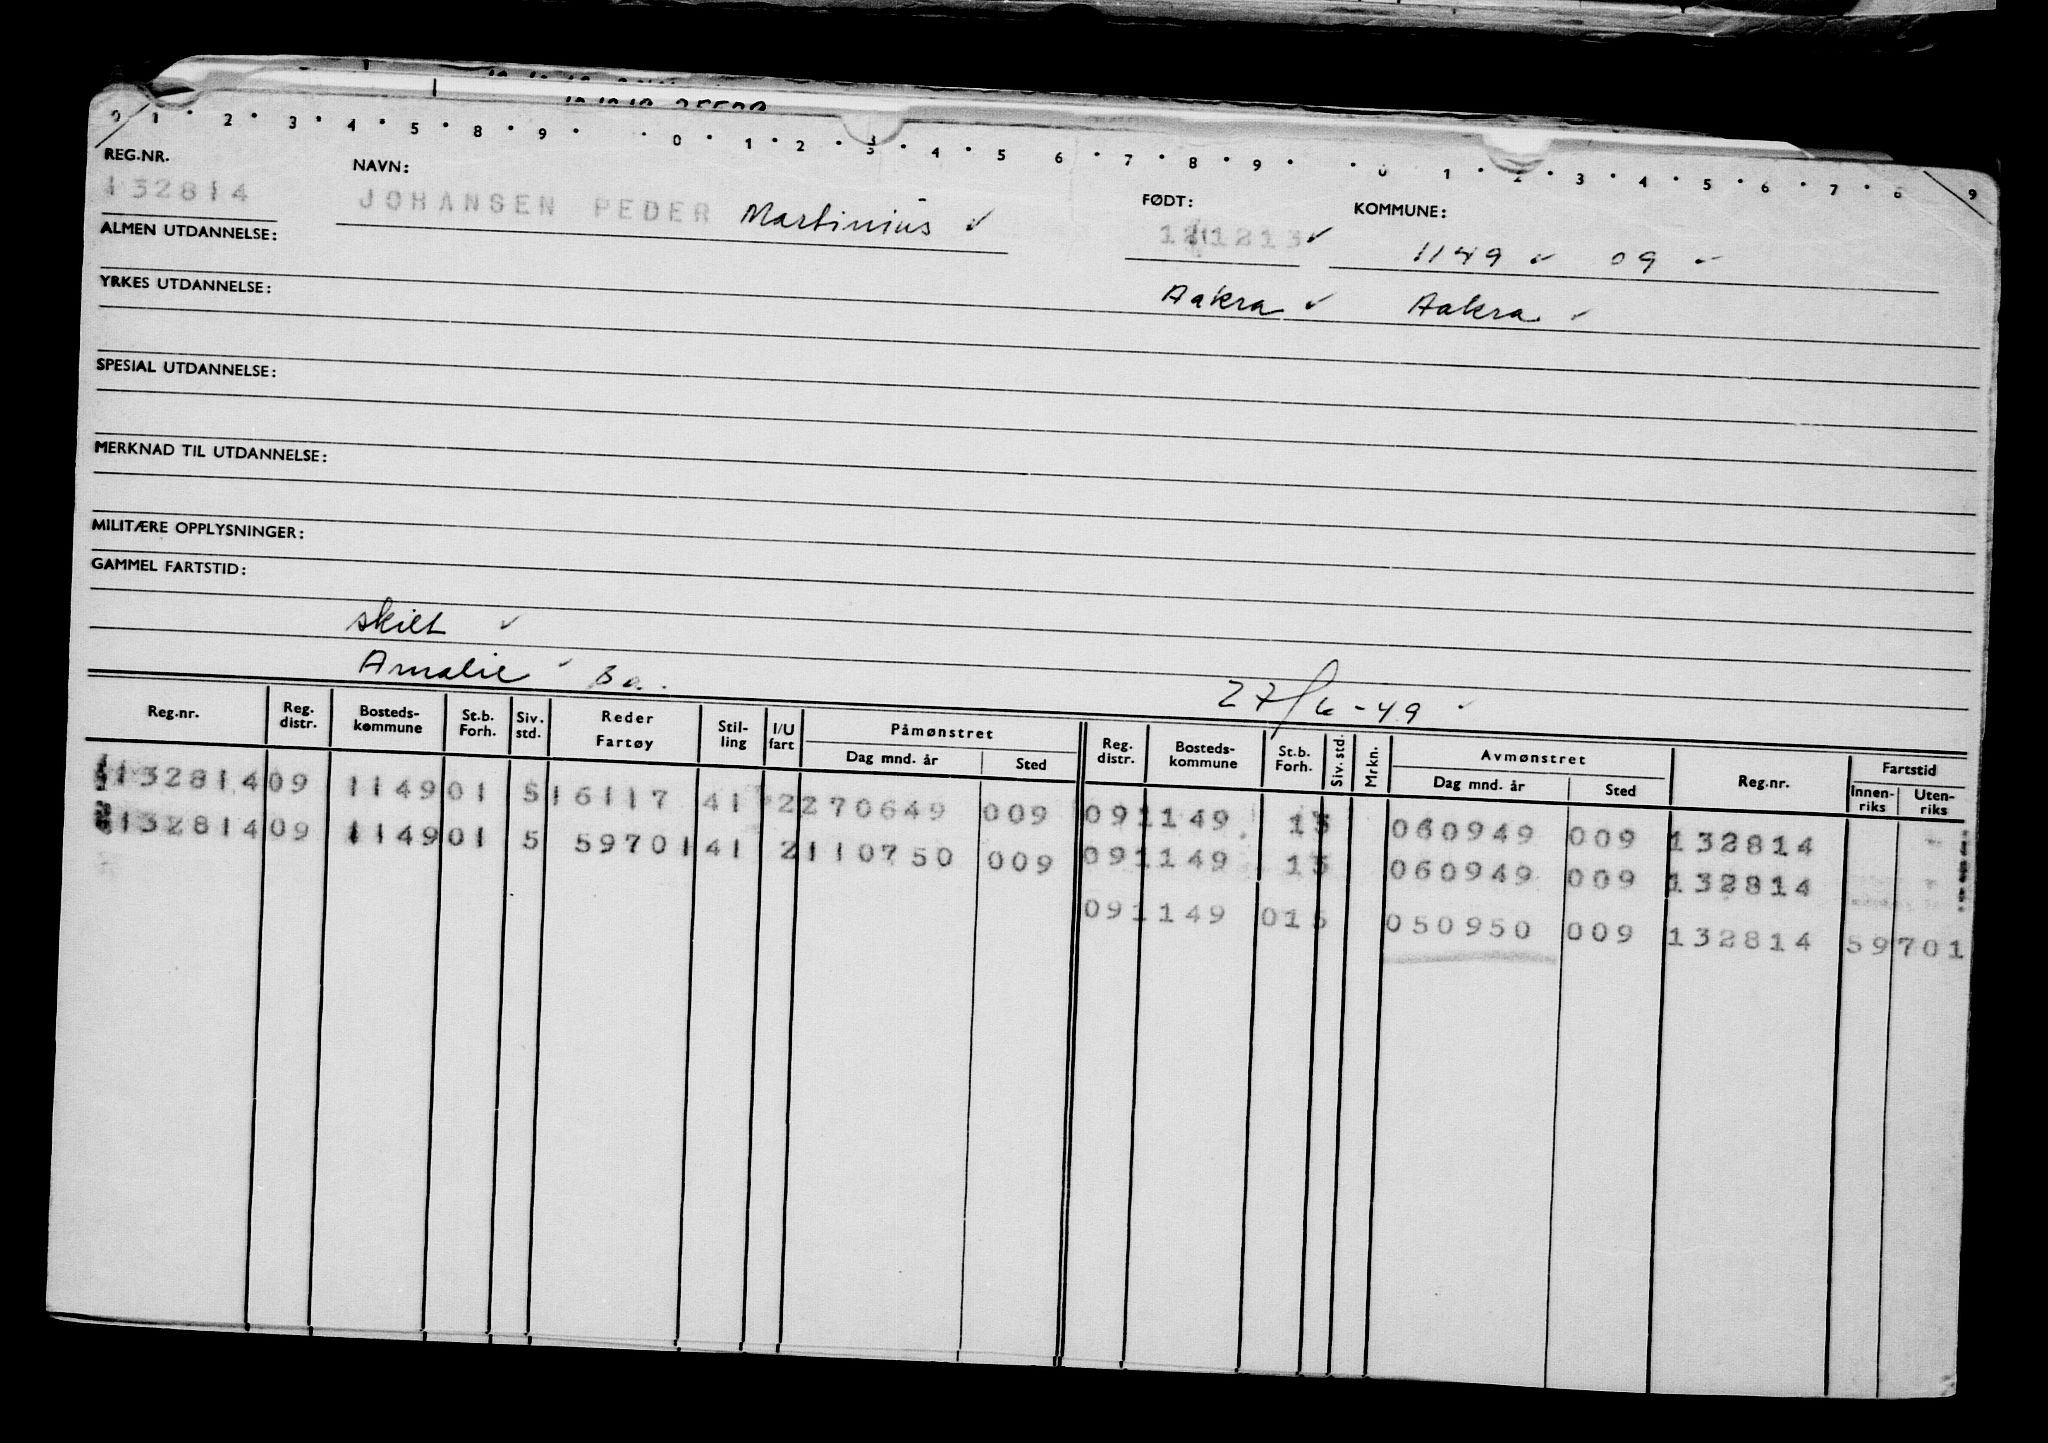 0 1 2 3 4 5 8 9 0 1 2 3 4 5 6 7 8 9 0 1 2 3 4 5 6 7 8 9
REG.NR. NAVN: FØDT: KOMMUNE:
132814 JOHANSEN PEDER Martinius 1149 09
ALMEN UTDANNELSE:
Aakra Aakra
YRKES UTDANNELSE:
SPESIAL UTDANNELSE:
MERKNAD TIL UTDANNELSE:
MILITÆRE OPPLYSNINGER:
GAMMEL FARTSTID:
skilt
Amalie Ba. 27/6-49
Reg.nr. Reg. distr. Bosteds- kommune St.b. Forh. Siv. std. Reder Fartøy Stil- ling I/U fart Påmønstret Dag mnd. år Sted Reg. distr. Bosteds- kommune St.b. Forh. Siv. std. Mrkn. Avmønstret Dag mnd. år Sted Reg.nr. Fartstid Innen- riks Uten- riks
132814 09 1149 01 5 16117 41 2 270649 009 09 1149 1 5 060949 009 132814
132814 09 1149 01 5 59701 41 2 110750 009 09 1149 1 5 060949 009 132814
09 1149 01 5 050950 009 132814 59701